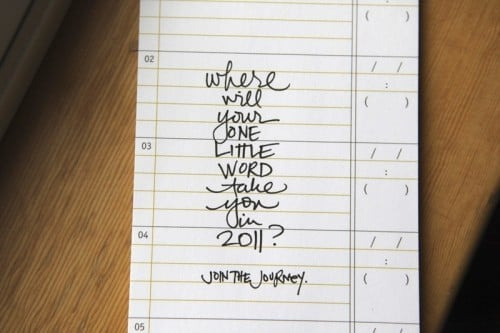 ( )
02
/ /
where
:
will
( )
your
ONE
03
LITTLE
/ /
WORD
:
take
( )
you
in
04
2011?
/ /
:
JOIN THE JOURNEY.
( )
05